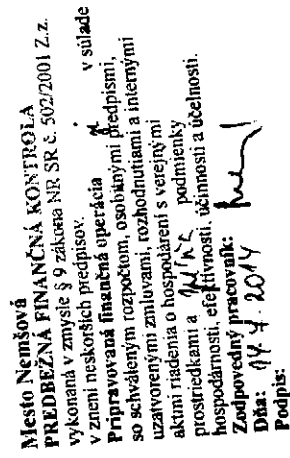 Mesto Nemšová
PREDBEŽNÁ FINANČNÁ KONTROLA
vykonaná v zmysle § 9 zákona NR SR č. 502/2001 Z.z.
v znení neskorších predpisov.
Pripravovaná finančná operácia je v súlade
so schváleným rozpočtom, osobitnými predpismi,
uzatvorenými zmluvami, rozhodnutiami a internými
aktmi riadenia o hospodárení s verejnými
prostriedkami a spĺňa podmienky
hospodárnosti, efektívnosti, účinnosti a účelnosti.
Zodpovedný pracovník:
Dňa: 2014
Podpis: